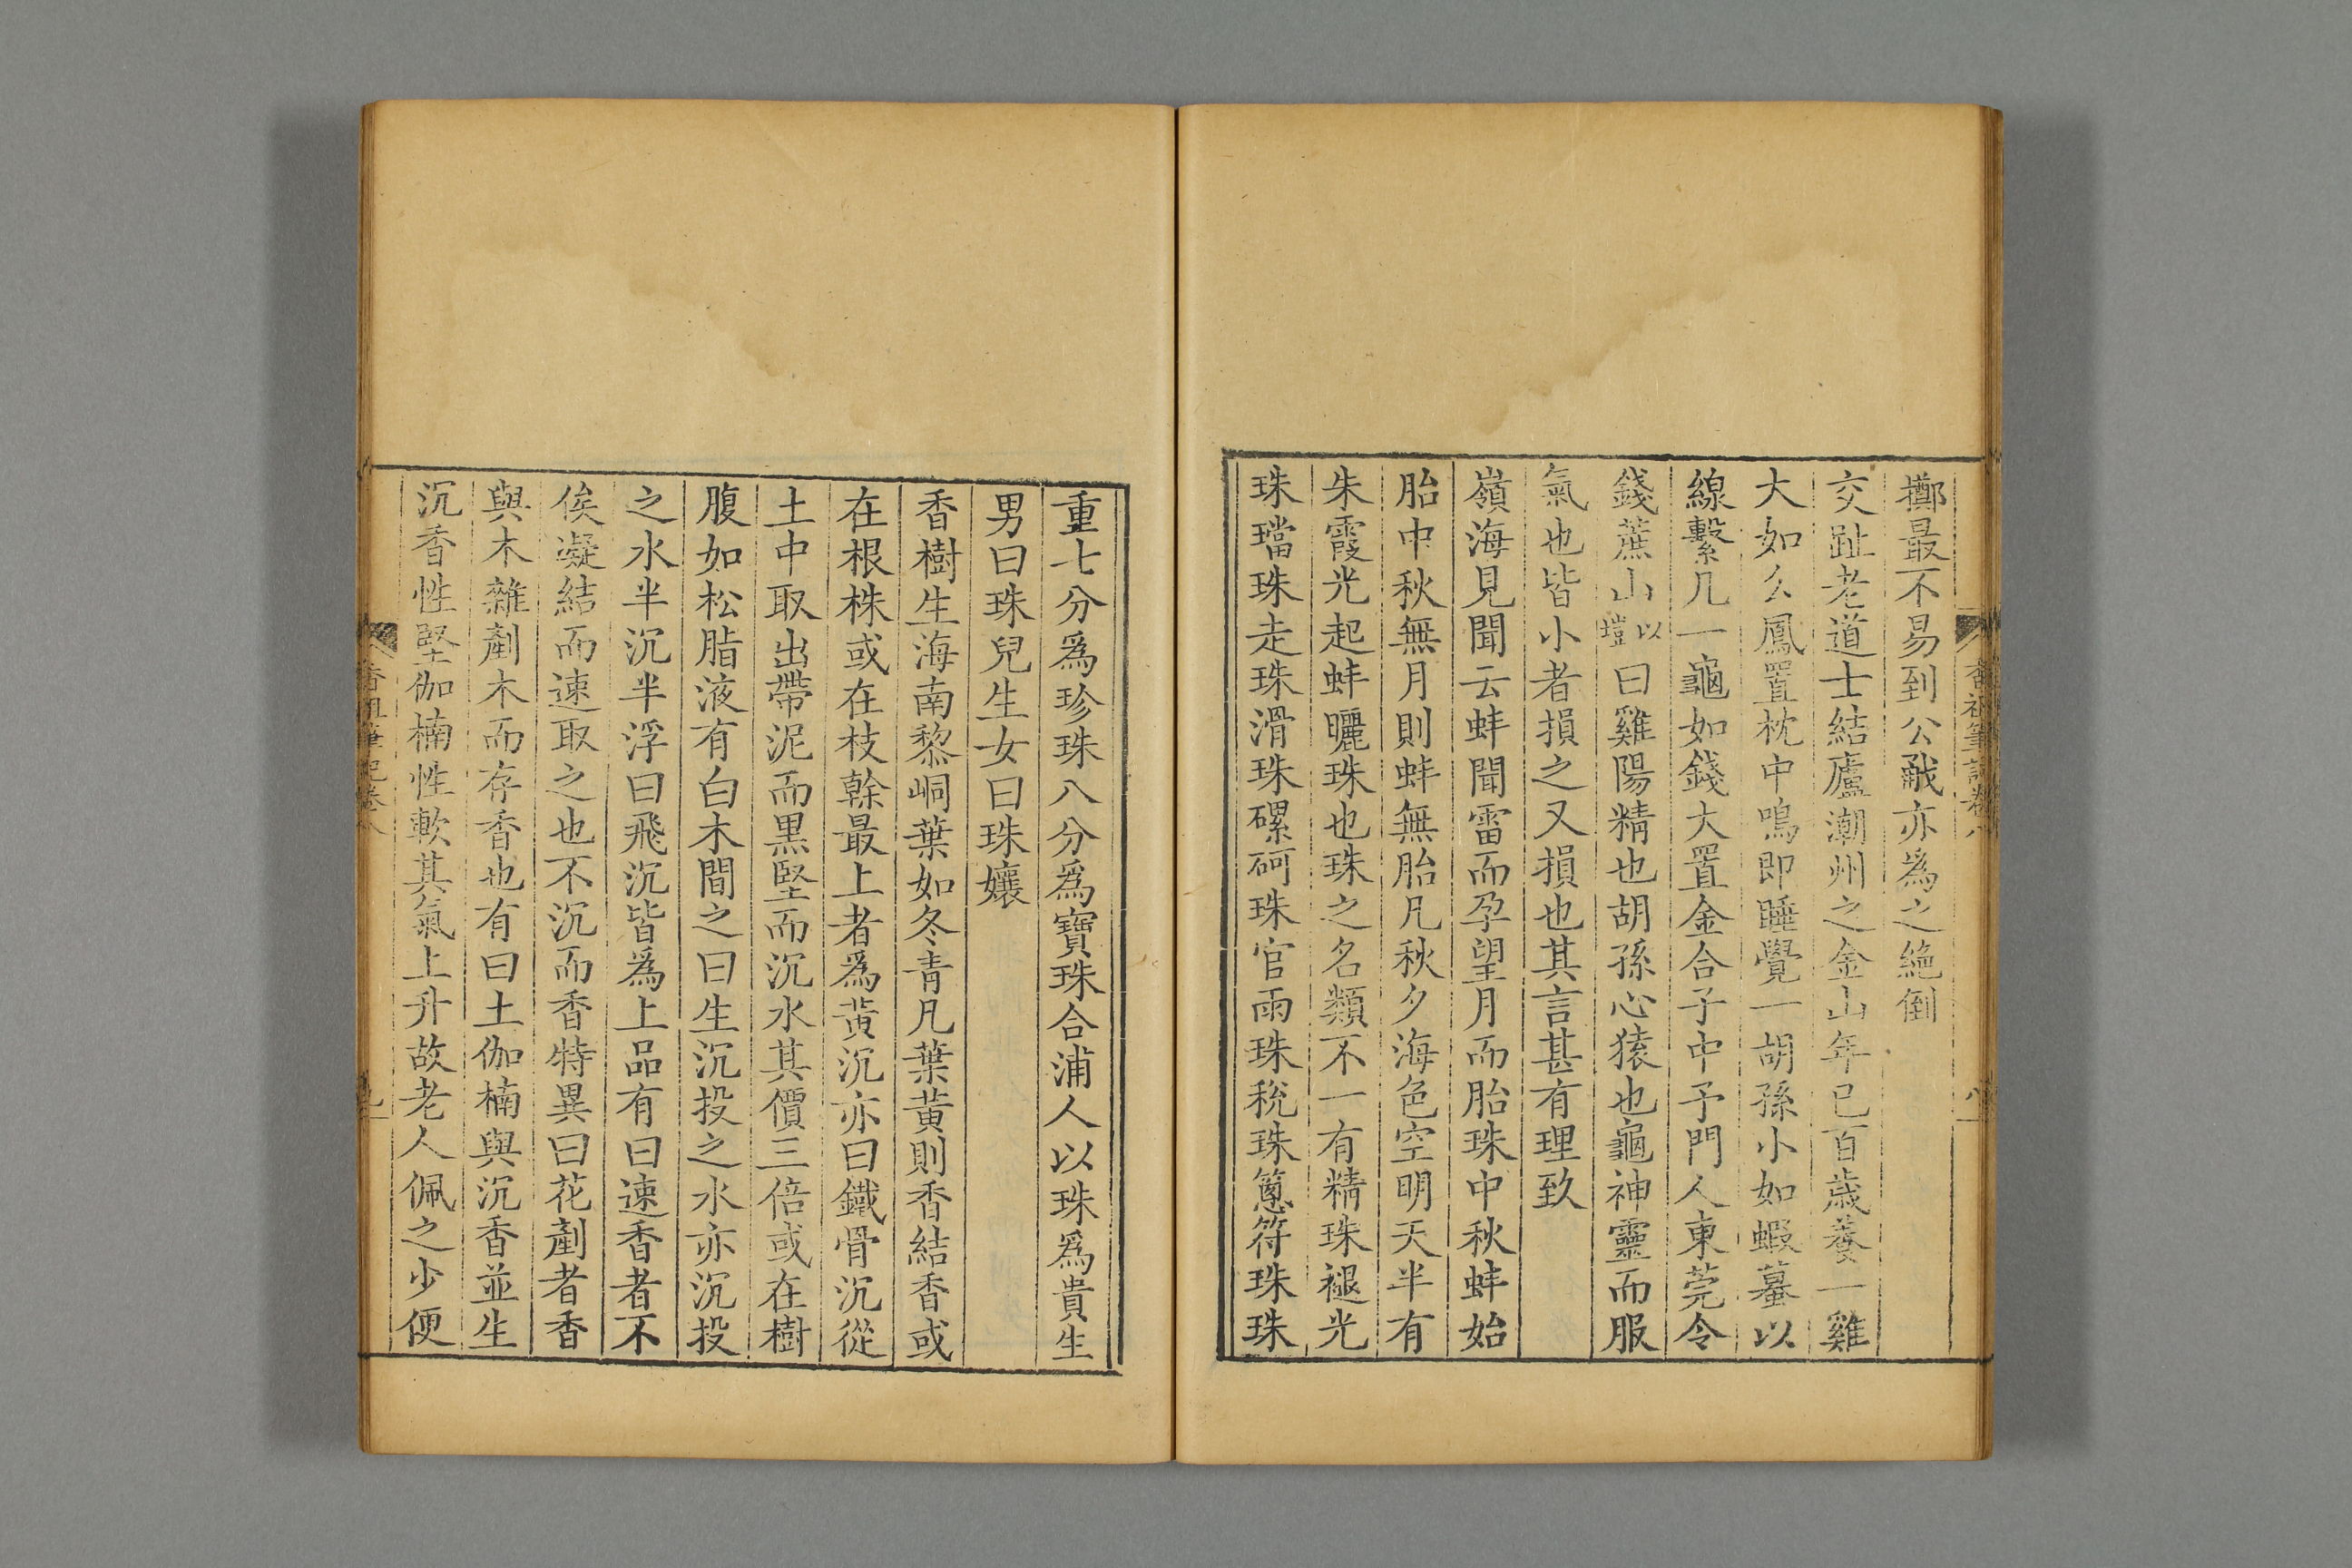 擲最不易到公戢亦為之絶倒
交趾老道士結廬潮州之金山年已百歲養一雞
大如么鳳置枕中鳴即睡覺一胡孫小如蝦蟇以
線繫几一龜如錢大置金合子中予門人東莞令
錢蔗山以塏曰雞陽精也胡孫心猿也龜神靈而服
氣也皆小者損之又損也其言甚有理致
嶺海見聞云蚌聞雷而孕望月而胎珠中秋蚌始
胎中秋無月則蚌無胎凡秋夕海色空明天半有
朱霞光起蚌曬珠也珠之名類不一有精珠褪光
珠璫珠走珠滑珠磥砢珠官雨珠稅珠蔥符珠珠
重七分爲珍珠八分爲寶珠合浦人以珠爲貴生
男曰珠兒生女曰珠孃
香樹生海南黎峒葉如冬青凡葉黃則香結香或
在根株或在枝幹最上者爲黃沉亦曰鐵骨沉從
土中取出帶泥而黑堅而沉水其價三倍或在樹
腹如松脂液有白木間之曰生沉投之水亦沉投
之水半沉半浮曰飛沉皆爲上品有曰速香者不
俟凝結而速取之也不沉而香特異曰花剷者香
與木雜剷木而存香也有曰土伽楠與沉香並生
沉香性堅伽楠性軟其氣上升故老人佩之少便
香祖筆記卷八